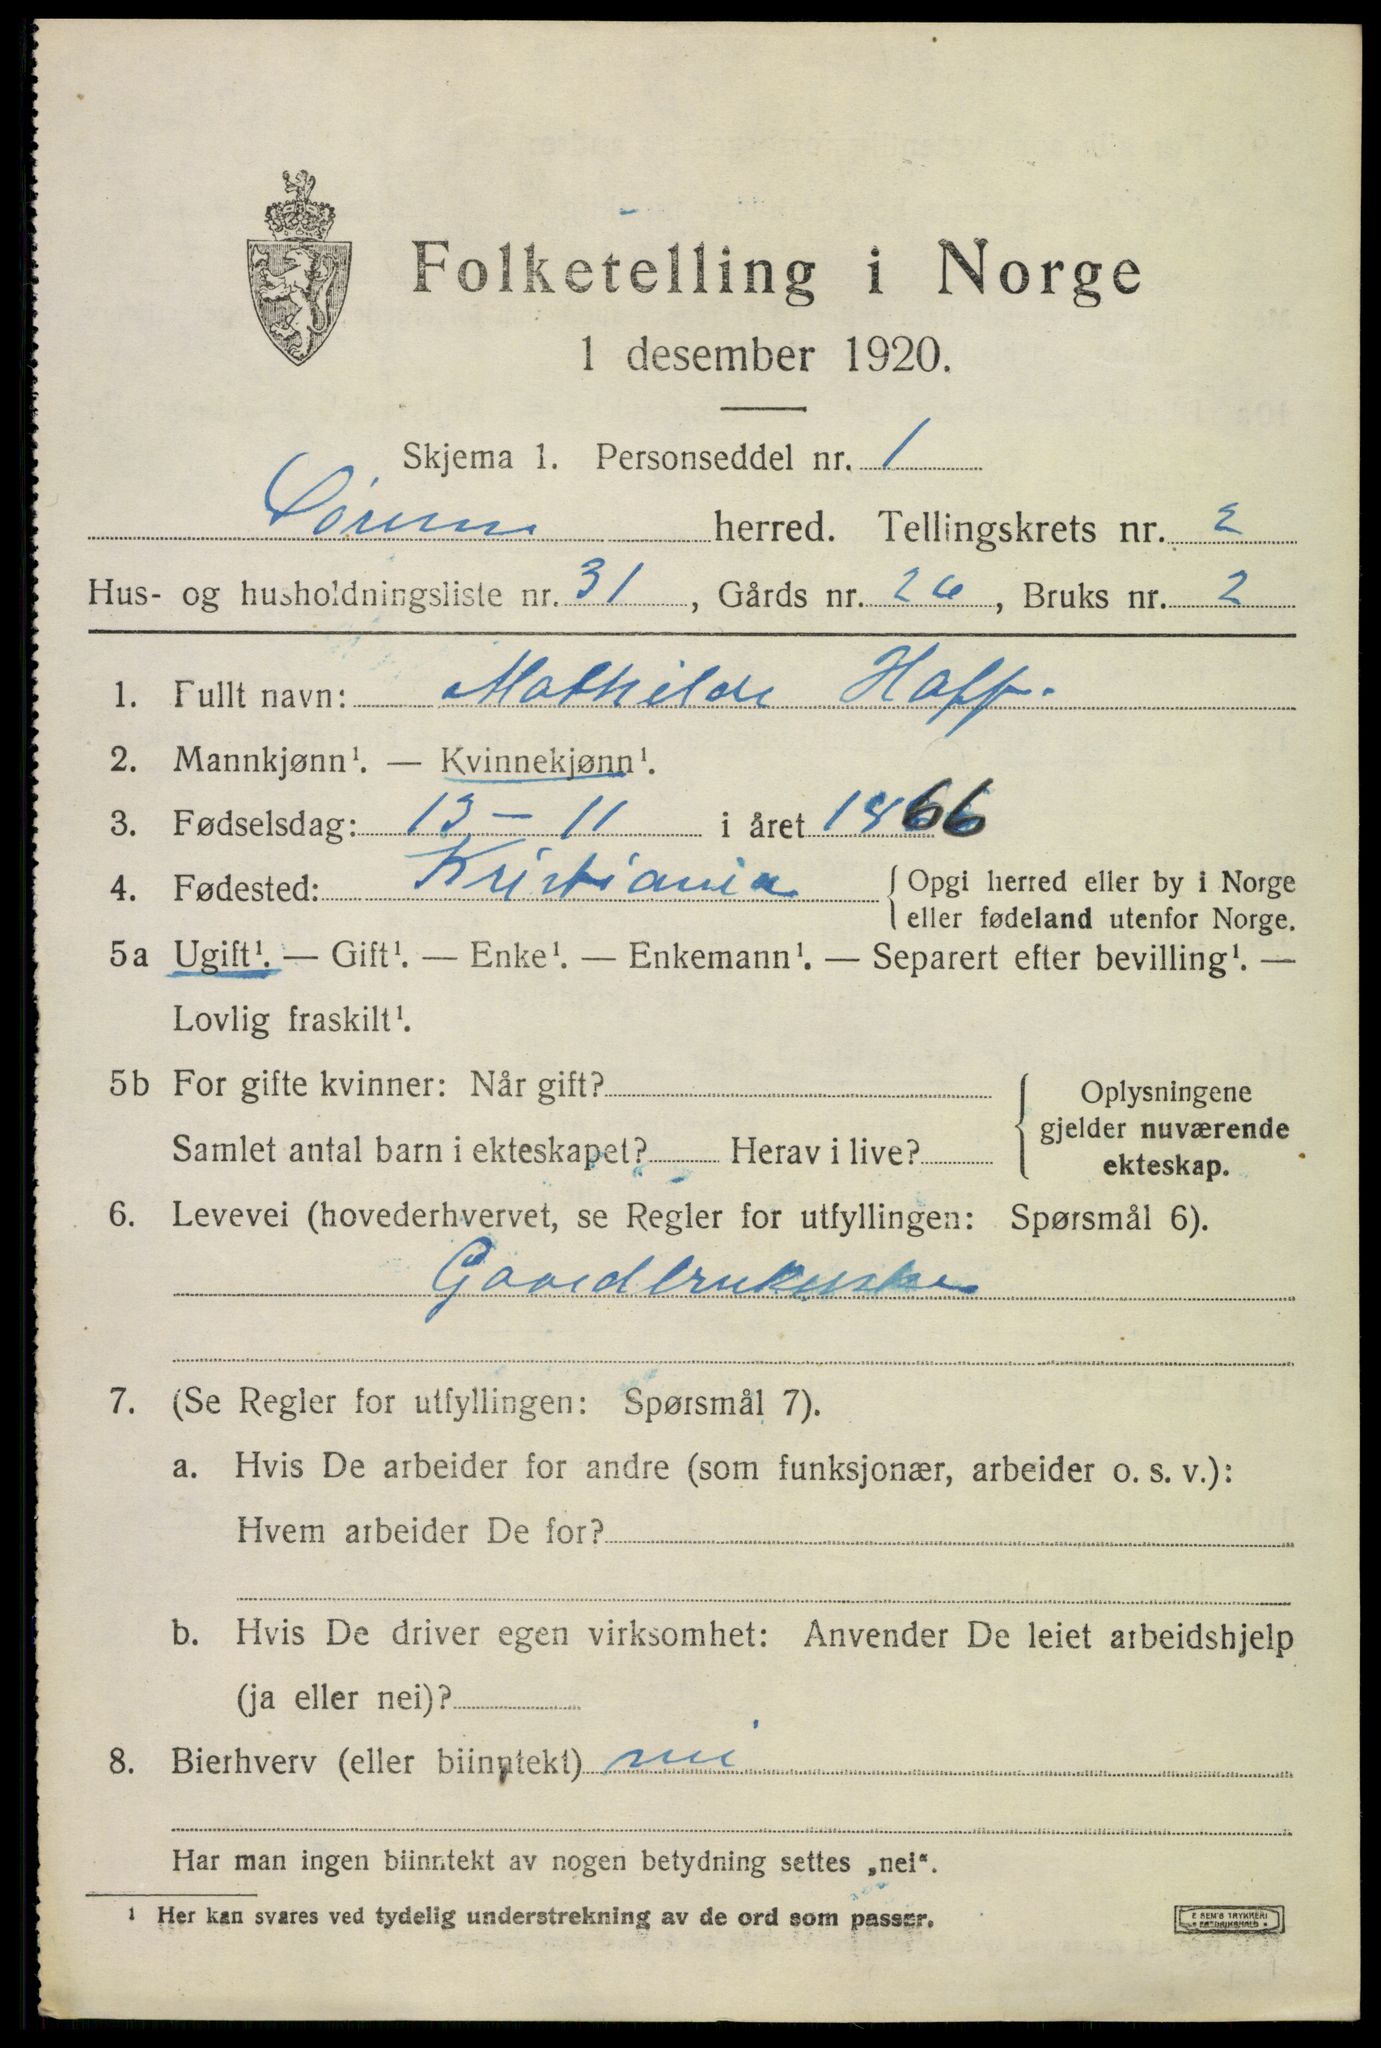 Folketelling i Norge
1 desember 1920.
Skjema 1. Personseddel nr. 1
Sørum herred. Tellingskrets nr. 2
Hus- og husholdningsliste nr. 31, Gårds nr. 26, Bruks nr. 2
1. Fullt navn: Mathilde Haff.
2. Mannkjønn¹. — Kvinnekjønn¹.
3. Fødselsdag: 13 - 11 i året 1866
4. Fødested: Kristiania { Opgi herred eller by i Norge
eller fødeland utenfor Norge.
5a Ugift¹. — Gift¹. — Enke¹. — Enkemann¹. — Separert efter bevilling¹. —
Lovlig fraskilt¹.
5b For gifte kvinner: Når gift? { Oplysningene
gjelder nuværende
Samlet antal barn i ekteskapet? Herav i live? ekteskap.
6. Levevei (hovederhvervet, se Regler for utfyllingen: Spørsmål 6).
7. (Se Regler for utfyllingen: Spørsmål 7).
a. Hvis De arbeider for andre (som funksjonær, arbeider o. s. v.):
Hvem arbeider De for?
b. Hvis De driver egen virksomhet: Anvender De leiet arbeidshjelp
(ja eller nei)?
8. Bierhverv (eller biinntekt) nei
Har man ingen biinntekt av nogen betydning settes „nei“.
¹ Her kan svares ved tydelig understrekning av de ord som passer.
E SEM'S TRYKKERI
FREDRIKSHALD